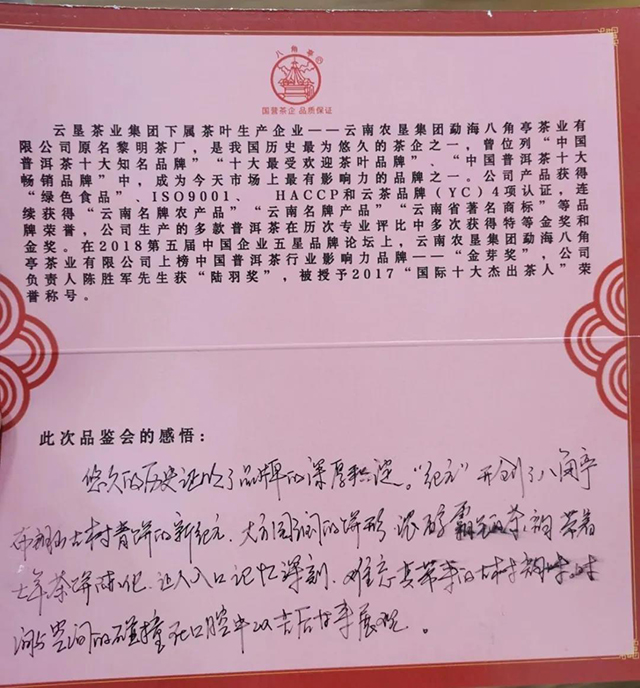 八角亭
国营茶企 品质保证
云垦茶业集团下属茶叶生产企业——云南农垦集团勐海八角亭茶业有
限公司原名黎明茶厂，是我国历史最为悠久的茶企之一，曾位列“中国
普洱茶十大知名品牌”“十大最受欢迎茶叶品牌”、“中国普洱茶十大
畅销品牌”中，成为今天市场上最有影响力的品牌之一。公司产品获得
“绿色食品”、ISO9001、 HACCP和云茶品牌（YC）4项认证，连
续获得“云南名牌农产品”“云南名牌产品”“云南省著名商标”等品
牌荣誉，公司生产的多款普洱茶在历次专业评比中多次获得特等金奖和
金奖。在2018第五届中国企业五星品牌论坛上，云南农垦集团勐海八角
亭茶业有限公司上榜中国普洱茶行业影响力品牌——“金芽奖”，公司
负责人陈胜军先生获“陆羽奖”，被授予2017“国际十大杰出茶人”荣
誉称号。
此次品鉴会的感悟：
悠久的历史证明了品牌的深厚积淀。“纪元”开创了八角亭
布朗山古树青饼的新纪元，大方圆润的饼形 浓醇霸气的茶韵 带着
七年茶饼陈化，让人入口记忆深刻，难忘其带来的古树韵味。时
间与空间的碰撞 在口腔中以吉后甘来展现。